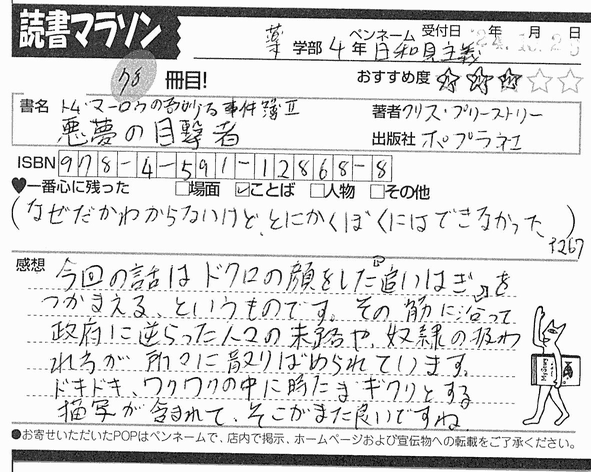 読書マラソン
受付日 '24年10月25日
薬学部4年 ペンネーム 日和見主義
78冊目!
おすすめ度 ★★★☆☆
書名 トム・マーロウの奇妙な事件簿Ⅱ
悪夢の目撃者
著者 クリス・プリーストリー
出版社 ポプラ社
ISBN 978-4-591-12868-8
♥一番心に残った □場面 ☑ことば □人物 □その他
(なぜだかわからないけど、とにかくぼくにはできなかった)
P267
感想 今回の話はドクロの顔をした『追いはぎ』を
つかまえる、というものです。その筋に沿って
政府に逆らった人々の末路や、奴隷の扱わ
れ方が所々に散りばめられています。
ドキドキ、ワクワクの中に時たまギクリとする
描写が含まれて、そこがまた良いですね。
●お寄せいただいたPOPはペンネームで、店内で掲示、ホームページおよび宣伝物への転載をご了承ください。